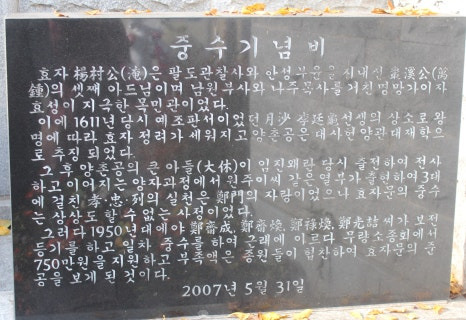 중수기념비
효자 楊村公(淹)은 팔도관찰사와 안성부윤을 지내신 巖溪公(萬
鍾)의 셋째 아드님이며 남원부사와 나주목사를 거친 명망가이자
효성이 지극한 목민관이었다.
이에 1611년 당시 예조판서이었던 月沙 李廷龜선생의 상소로 왕
명에 따라 효자 정려가 세워지고 양촌공은 대사헌양관대재학으
로 추징 되었다.
그 후 양촌공의 큰 아들(大休)이 임진왜란 당시 출전하여 전사
하고 이어지는 양자과정에서 원주이씨 같은 열부가 출현하여 3대
에 걸친 孝·忠·烈의 실천은 鄭門의 자랑이었으나 효자문의 중수
는 상상도 할 수 없는 사정이었다.
그러다 1950년대에야 鄭喬成, 鄭喬煥, 鄭祿燒, 鄭光喆씨가 보전
등기를 하고 일차 중수를 하여 근래에 이르다 무량소종회에서
750만원을 지원하고 부족액은 종원들이 힘찬하여 효자문의 준
공을 보게 된 것이다.
2007년 5월 31일